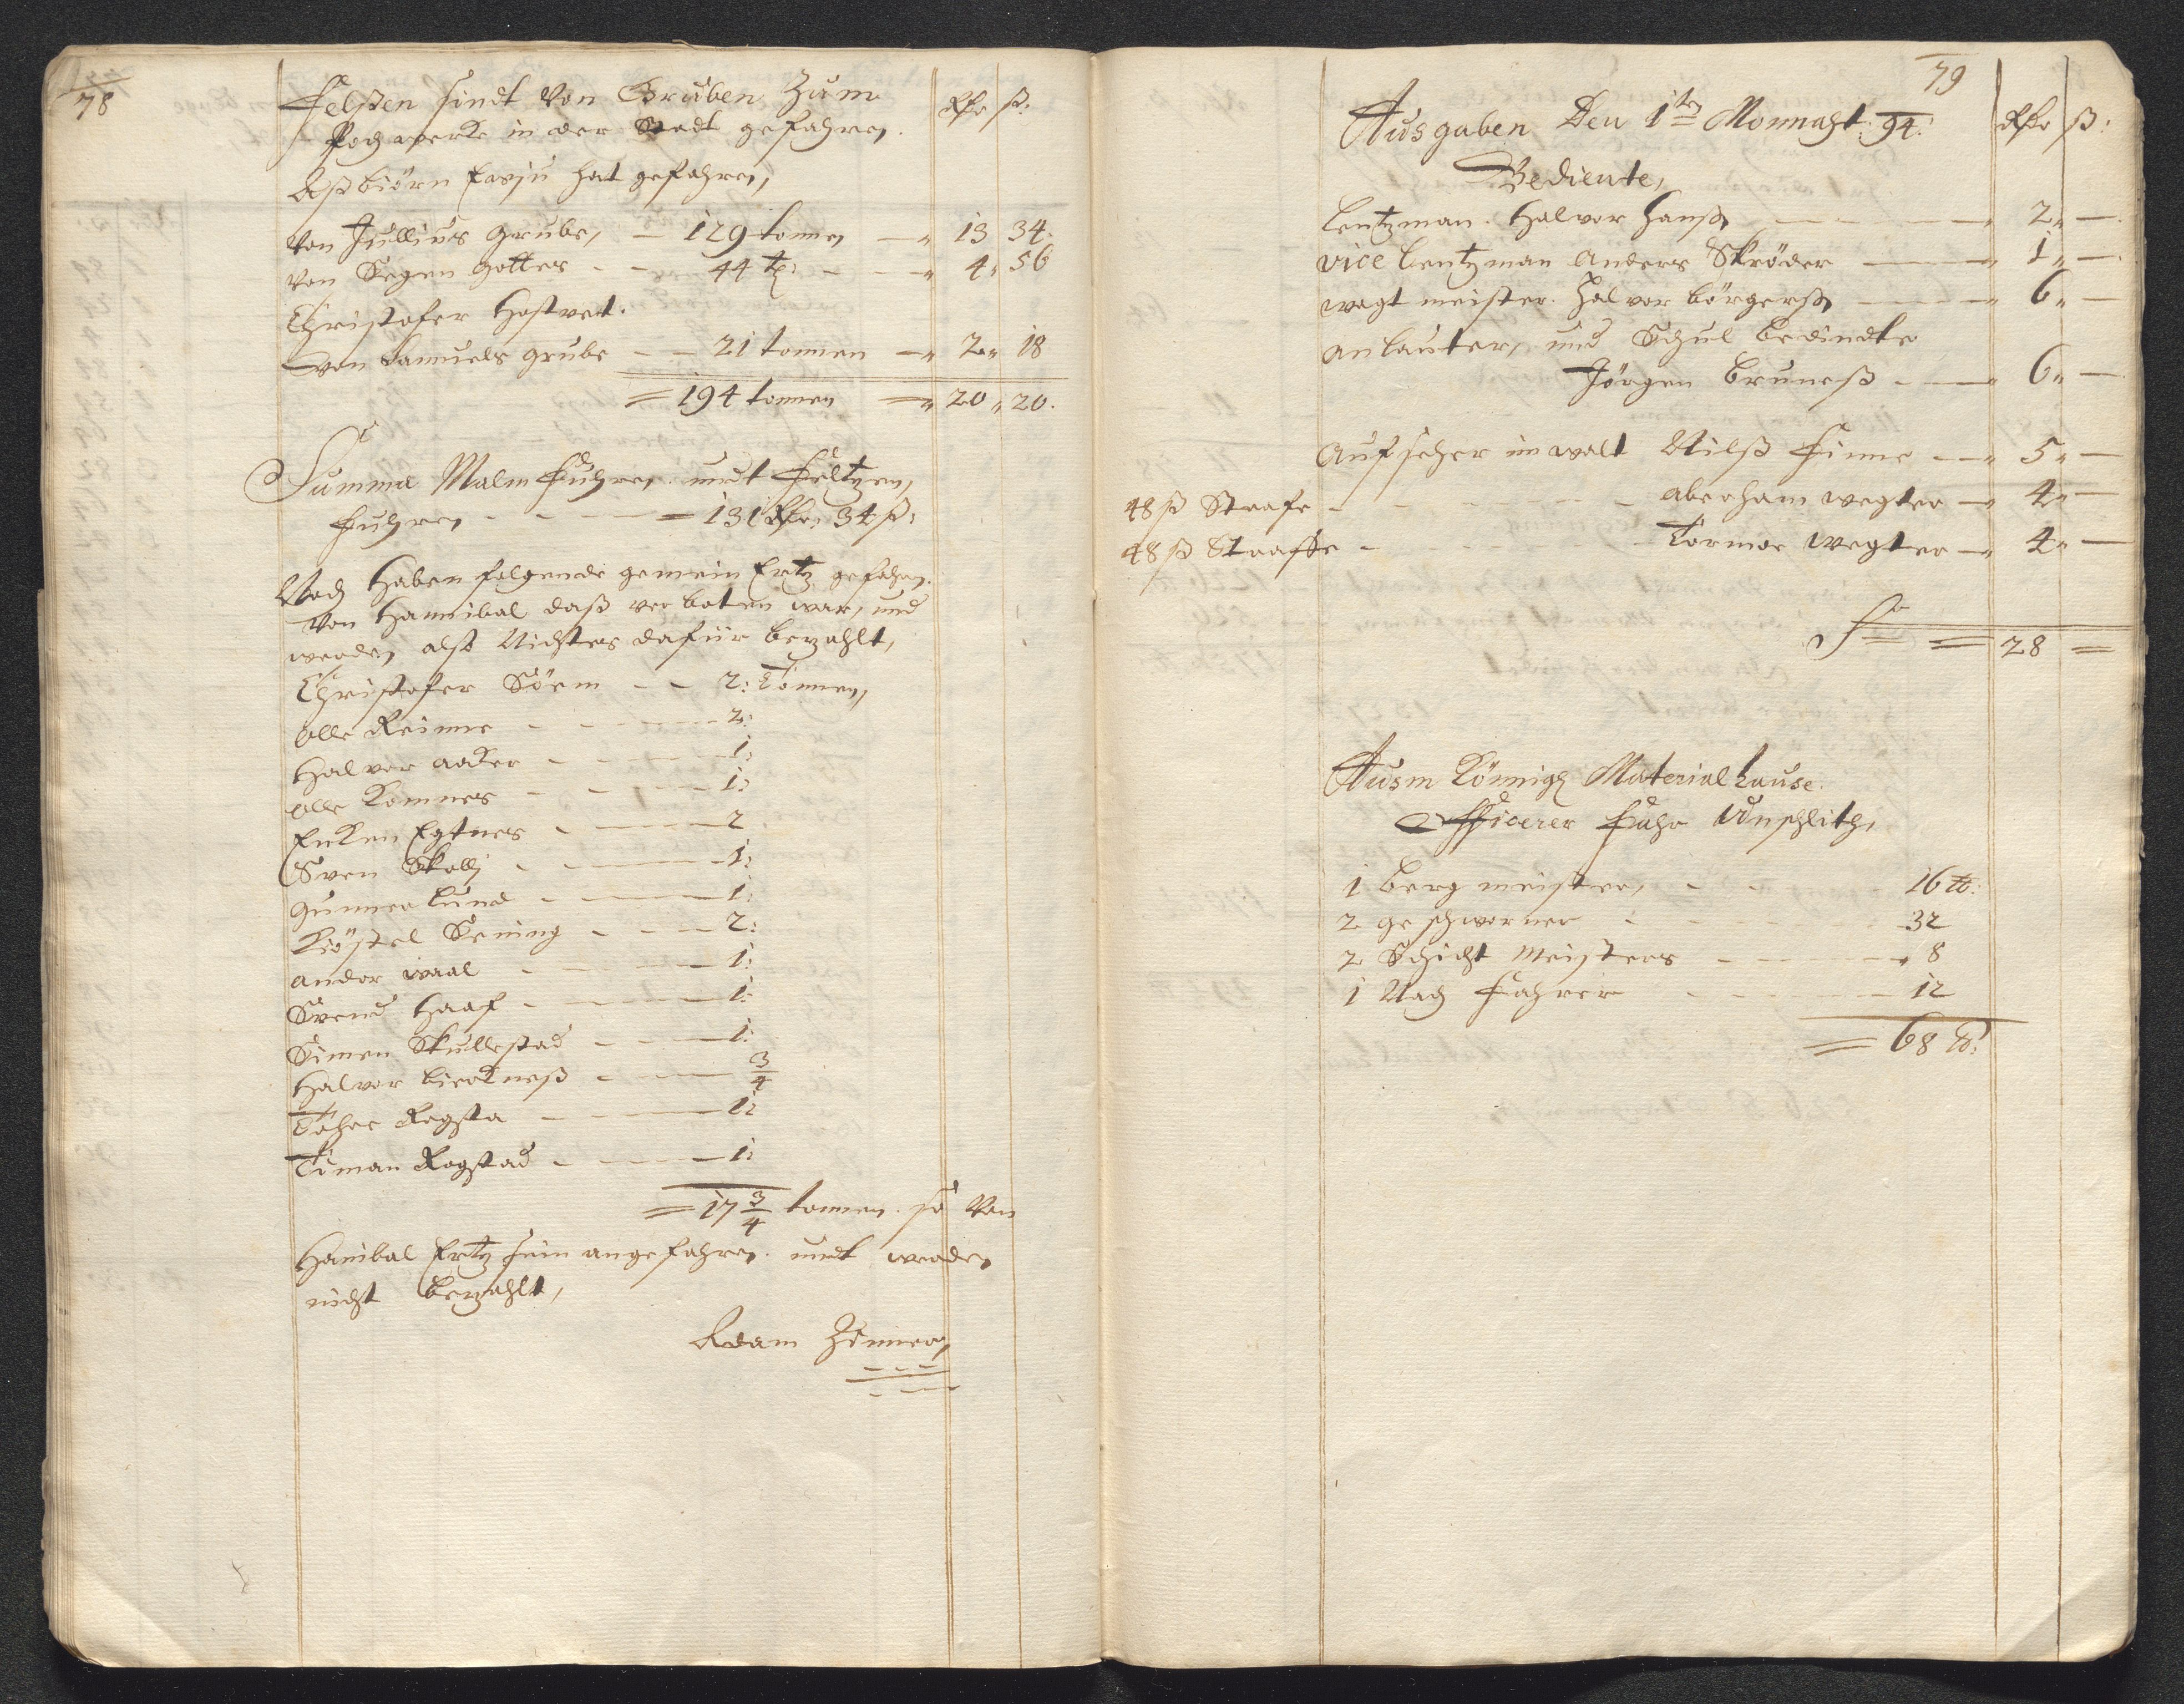 78
Felßen sindt von Gruben Zum Rthr ß:
Pochwercke in der Stadt gefahren.
Aßbiörn hat gefahren,
von Jullius Grube, — 129 tonnen — 13 34.
von Segen Gottes - - 44 t: - — 4 56
Christofer Hostvet.
von Samuels grube - - 21 tonnen — 2 18
= 194 tonnen = 20 20.
Summa Malm Fuhren undt Feltzen,
Fuhren - - — = 131 Rthr: 34 ß:
Noch haben folgende gemein Ertz gefahren.
von Hannibal daß verboten war, und
werden alß Nichtes dafür bezahlt,
Christofer Sörm - - 2: Tonnen,
Olle Reimer - - — 2:
Halvor aaker - - — 1:
Olle Komnes - - — 1:
Egtnes - — 2
Sven Skollj - - — 1:
Gunner Lund - — 1:
Kiöstel Sening - - — 2:
andor waal - - — 1:
Svend Haaf - — 1:
Simen Skullestad - — 1:
Halvor bierkneß - — 3/4
Togstad - — 1:
Timan Rogstad - — 1:
= 17 3/4 tonnen. so von
Hanibal Ertz sein angefahren. undt werden
nicht bezahlt,
Adam Zimmer,
79
Ausgaben Den 1ten Monnaht: 94: Rthr ß:
Bediente,
Lentzman. Halvor Hanß — 2 —
vice Lentzman Anders Skröder — 1 —
wagt meister. Halvor börgerß — 6 —
anlauter, und Schul bedindte
Jörgen Bruneß - — 6 —
Aufseher im walt Nilß Finne — 5 —
48 ß Straafe - - - - aberham wegter — 4 —
48 ß Straaffe - - - - Tormoe wegter — 4 —
S = 28 =
Ausm Königl Material hause.
Officierer Fahr Unschlith,
1 berg meister, - - 16 ℔:
2 geschworner - - 32
2 Schicht Meisters - — 8
1 Nach Fahrer - - — 12
= 68 ℔: